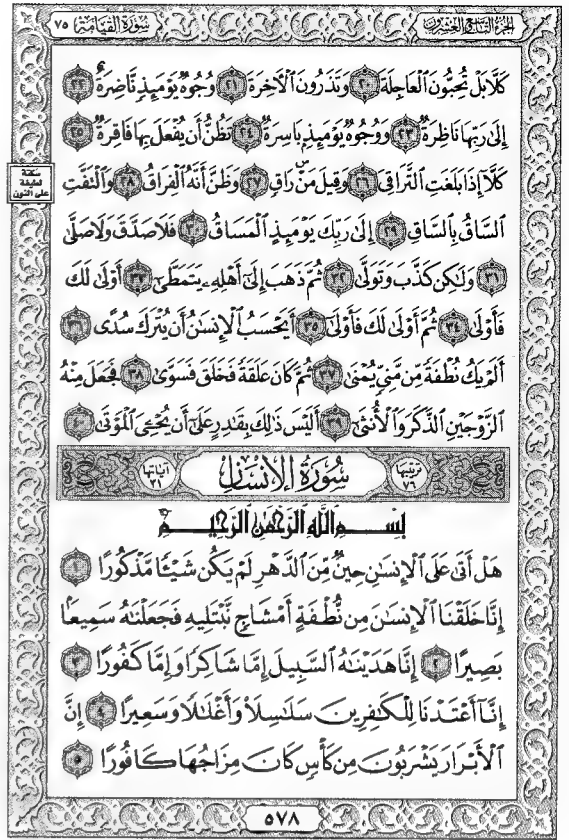 الجزء التاسع والعشرون
سورة القيامة ٧٥
كَلَّا بَلْ تُحِبُّونَ ٱلْعَاجِلَةَ ٢٠ وَتَذَرُونَ ٱلْآخِرَةَ ٢١ وُجُوهٌ يَوْمَئِذٍ نَّاضِرَةٌ ٢٢
إِلَىٰ رَبِّهَا نَاظِرَةٌ ٢٣ وَوُجُوهٌ يَوْمَئِذٍ بَاسِرَةٌ ٢٤ تَظُنُّ أَن يُفْعَلَ بِهَا فَاقِرَةٌ ٢٥
كَلَّا إِذَا بَلَغَتِ ٱلتَّرَاقِيَ ٢٦ وَقِيلَ مَنْ ۜ رَاقٍ ٢٧ وَظَنَّ أَنَّهُ ٱلْفِرَاقُ ٢٨ وَٱلْتَفَّتِ
سكتة
لطيفة
على النون
ٱلسَّاقُ بِٱلسَّاقِ ٢٩ إِلَىٰ رَبِّكَ يَوْمَئِذٍ ٱلْمَسَاقُ ٣٠ فَلَا صَدَّقَ وَلَا صَلَّىٰ
٣١ وَلَٰكِن كَذَّبَ وَتَوَلَّىٰ ٣٢ ثُمَّ ذَهَبَ إِلَىٰٓ أَهْلِهِۦ يَتَمَطَّىٰٓ ٣٣ أَوْلَىٰ لَكَ
فَأَوْلَىٰ ٣٤ ثُمَّ أَوْلَىٰ لَكَ فَأَوْلَىٰٓ ٣٥ أَيَحْسَبُ ٱلْإِنسَٰنُ أَن يُتْرَكَ سُدًى ٣٦
أَلَمْ يَكُ نُطْفَةً مِّن مَّنِيٍّ يُمْنَىٰ ٣٧ ثُمَّ كَانَ عَلَقَةً فَخَلَقَ فَسَوَّىٰ ٣٨ فَجَعَلَ مِنْهُ
ٱلزَّوْجَيْنِ ٱلذَّكَرَ وَٱلْأُنثَىٰٓ ٣٩ أَلَيْسَ ذَٰلِكَ بِقَٰدِرٍ عَلَىٰٓ أَن يُحْـِۧيَ ٱلْمَوْتَىٰ ٤٠
ترتيبها ٧٦
سورة الإنسان
آياتها ٣١
بِسْمِ ٱللَّهِ ٱلرَّحْمَٰنِ ٱلرَّحِيمِ
هَلْ أَتَىٰ عَلَى ٱلْإِنسَٰنِ حِينٌ مِّنَ ٱلدَّهْرِ لَمْ يَكُن شَيْـًٔا مَّذْكُورًا ١
إِنَّا خَلَقْنَا ٱلْإِنسَٰنَ مِن نُّطْفَةٍ أَمْشَاجٍ نَّبْتَلِيهِ فَجَعَلْنَٰهُ سَمِيعًۢا
بَصِيرًا ٢ إِنَّا هَدَيْنَٰهُ ٱلسَّبِيلَ إِمَّا شَاكِرًا وَإِمَّا كَفُورًا ٣
إِنَّآ أَعْتَدْنَا لِلْكَٰفِرِينَ سَلَٰسِلَا۟ وَأَغْلَٰلًا وَسَعِيرًا ٤ إِنَّ
ٱلْأَبْرَارَ يَشْرَبُونَ مِن كَأْسٍ كَانَ مِزَاجُهَا كَافُورًا ٥
٥٧٨